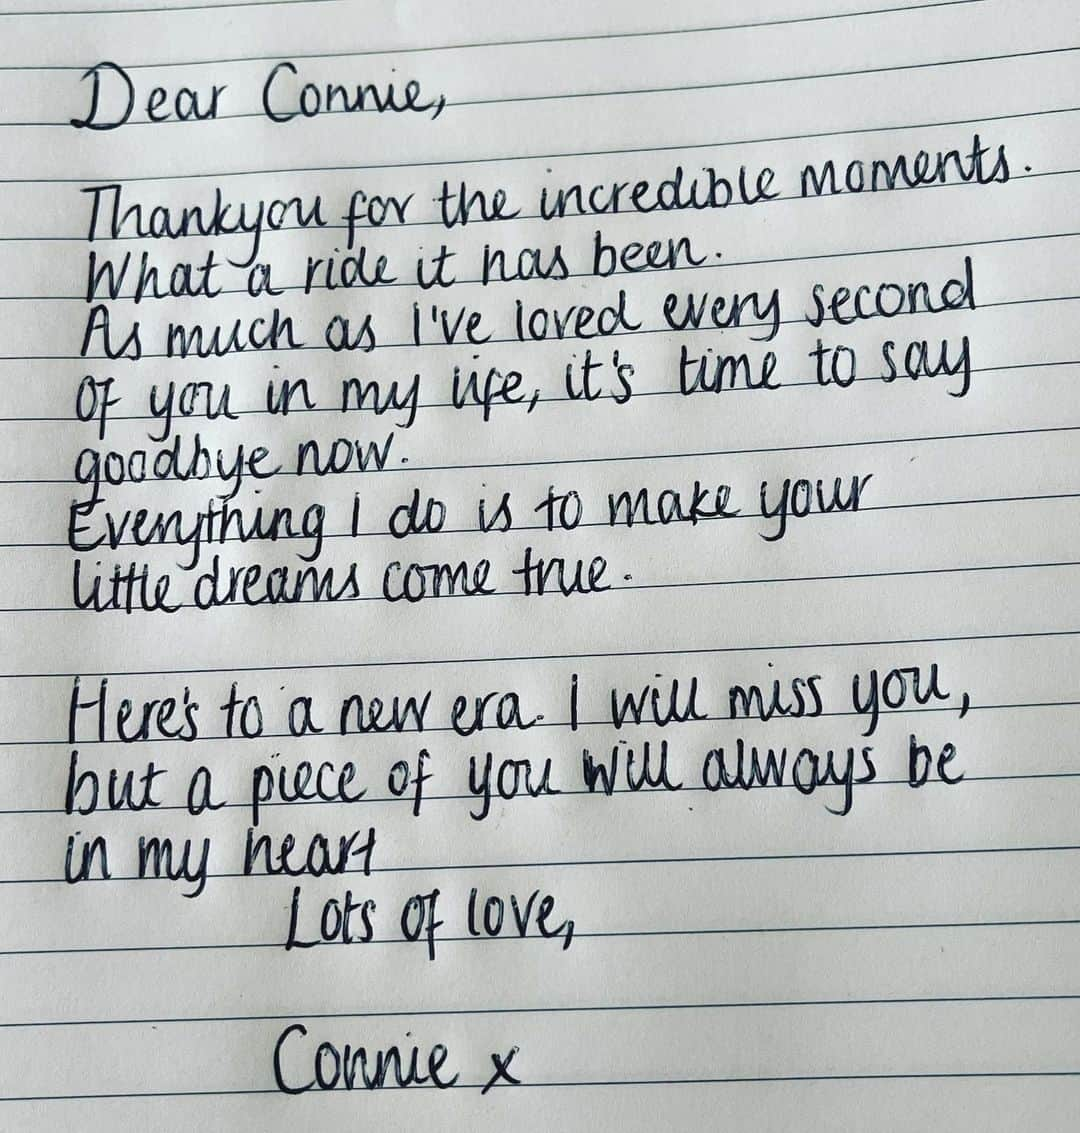 Dear Connie,
Thankyou for the incredible moments.
What a ride it has been.
As much as I've loved every second
of you in my life, it's time to say
goodbye now.
Everything I do is to make your
little dreams come true.
Here's to a new era. I will miss you,
but a piece of you will always be
in my heart
Lots of love,
Connie x